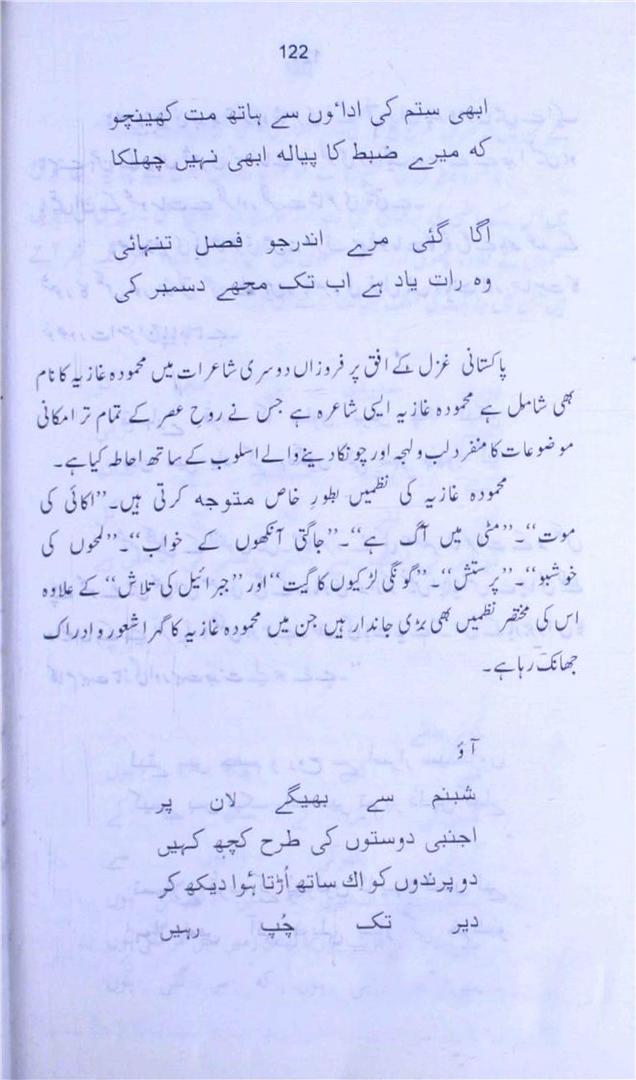 122
ابھی ستم کی اداؤں سے ہاتھ مت کھینچو
کہ میرے ضبط کا پیالہ ابھی نہیں چھلکا
اگا گئی مرے اندرجو فصلِ تنہائی
وہ رات یاد ہے اب تک مجھے دسمبر کی
پاکستانی غزل کے افق پر فروزاں دوسری شاعرات میں محمودہ غازیہ کا نام
بھی شامل ہے محمودہ غازیہ ایسی شاعرہ ہے جس نے روحِ عصر کے تمام تر امکانی
موضوعات کا منفرد لب ولہجہ اور چونکا دینے والے اسلوب کے ساتھ احاطہ کیا ہے۔
محمودہ غازیہ کی نظمیں بطورِ خاص متوجہ کرتی ہیں۔ ”اکائی کی
موت“۔ ”مٹی میں آگ ہے“۔ ”جاگتی آنکھوں کے خواب“۔ ”لمحوں کی
خوشبو“۔ ”پرستش“۔ ”گونگی لڑکیوں کا گیت“ اور ”جبرائیل کی تلاش“ کے علاوہ
اس کی مختصر نظمیں بھی بڑی جاندار ہیں جن میں محمودہ غازیہ کا گہرا شعور و ادراک
جھانک رہا ہے۔
آؤ
شبنم سے بھیگے لان پر
اجنبی دوستوں کی طرح کچھ کہیں
دو پرندوں کو اك ساتھ اُڑتا ہُوا دیکھ کر
دیر تک چُپ رہیں